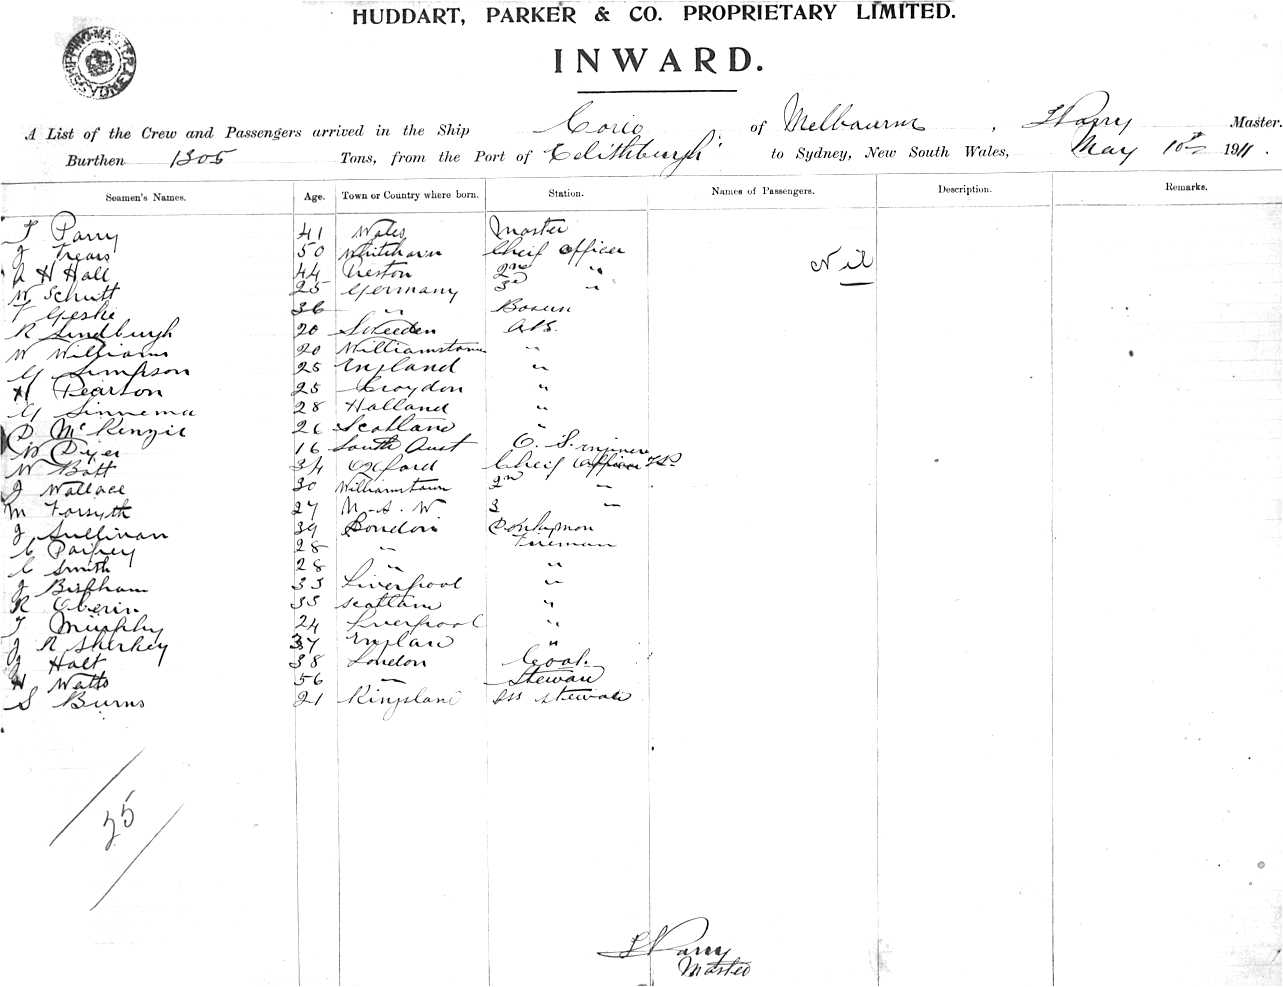 HUDDART, PARKER & CO. PROPRIETARY LIMITED.
INWARD.
SHIPPING MASTER SYDNEY
A List of the Crew and Passengers arrived in the Ship Corio of Melbourne, Parry Master.
Burthen 1305 Tons, from the Port of Edithburgh to Sydney, New South Wales, May 1911.
Seamen's Names. Age. Town or Country where born. Station. Names of Passengers. Description. Remarks.
Parry 41 Wales Master
J 50 Cheif Officer Nil
A H Hall 44 Preston 2nd "
W Schutt 25 Germany 3d "
Geske 36 " Bosun
R Lindburgh 20 Sweeden A.B.
W Williams 20 Williamstown "
G Simpson 25 England "
H Pearson 25 Croydon "
G Sinnema 28 Holland "
D McKenzie 26 Scotland "
W Dyer 16 South Aust
W Bott 34 Oxford Cheif
J Wallace 30 Williamstown 2nd "
M Forsyth 27 N.S.W 3 "
J Sullivan 39 London Donkymon
C 28 " Fireman
C Smith 28 " "
J 33 Liverpool "
R Oberin 35 "
T Murphy 24 Liverpool "
J R Sharkey 37 "
J Holt 38 London Cook
H Watts 56 "
S Burns 21
25
Parry
Master